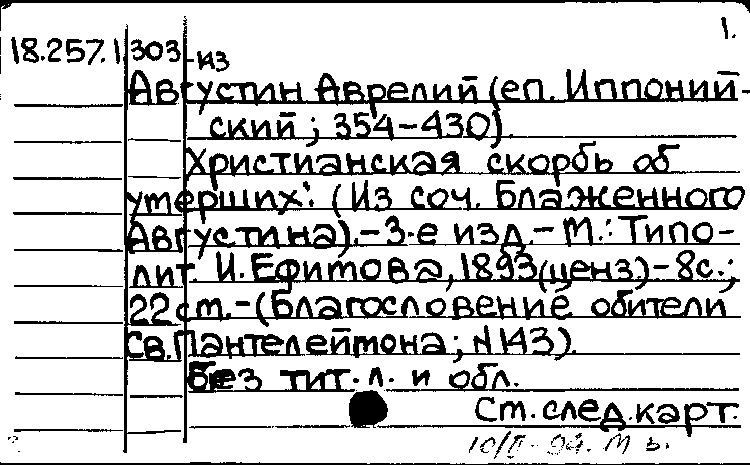 1.
18.257.1.303-из
Августин Аврелий (еп. Иппоний-
ский; 354-430).
Христианская скорбь об
умерших: (Из соч. Блаженного
Августина).-3-е изд.-М.: Типо-
лит. И. Ефимова, 1893(ценз.)-8с.;
22см.-(Благословение обители
Св. Пантелеймона; N143).
Без тит. л. и обл.
См. след. карт.
10/II-94.